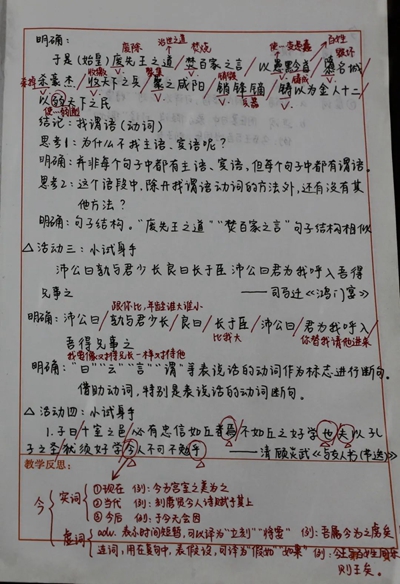 明确:
废除 治世之道 焚烧 使…变愚蠢 百姓 毁坏
于是(始皇)废先王之道/焚百家之言/以愚黔首/隳名城/
杀豪杰/收天下之兵/聚之咸阳/销锋镝/铸以为金人十二/
以弱天下之民
结论:找谓语(动词)
思考1:为什么不找主语、宾语呢?
明确:并非每个句子中都有主语、宾语,但每个句子中都有谓语。
思考2:这个语段中,除开找谓语动词的方法外,还有没有其
他方法?
明确:句子结构。“废先王之道”“焚百家之言”句子结构相似
△活动三:小试身手
沛公曰孰与君少长良曰长于臣沛公曰君为我呼入吾得
兄事之
——司马迁《鸿门宴》
跟你比,年龄谁大谁小
明确:沛公曰/孰与君少长/良曰/长于臣/沛公曰/君为我呼入/
吾得兄事之
比我大 你替我请他进来
我要像对待兄长一样对待他
明确:“曰”“云”“言”“谓”等表说话的动词作为标志进行断句。
借助动词,特别是表说话的动词断句。
△活动四:小试身手
1.子曰十室之邑必有忠信如丘者焉不如丘之好学也夫以孔
子之圣犹须好学今人可不勉乎
——清 顾炎武《与友人书》
教学反思:
今
实词
①现在 例:今为宫室之美为之
②当代 例:刻唐贤今人诗赋于其上
③今后 例:于今无会因
虚词
adv. 表示时间短暂,可以译为“立刻”“将要” 例:吾属今为之虏矣
连词,用在复句中,表假设,可译为“假如”“如果” 例:今王与百姓同乐
则王矣。